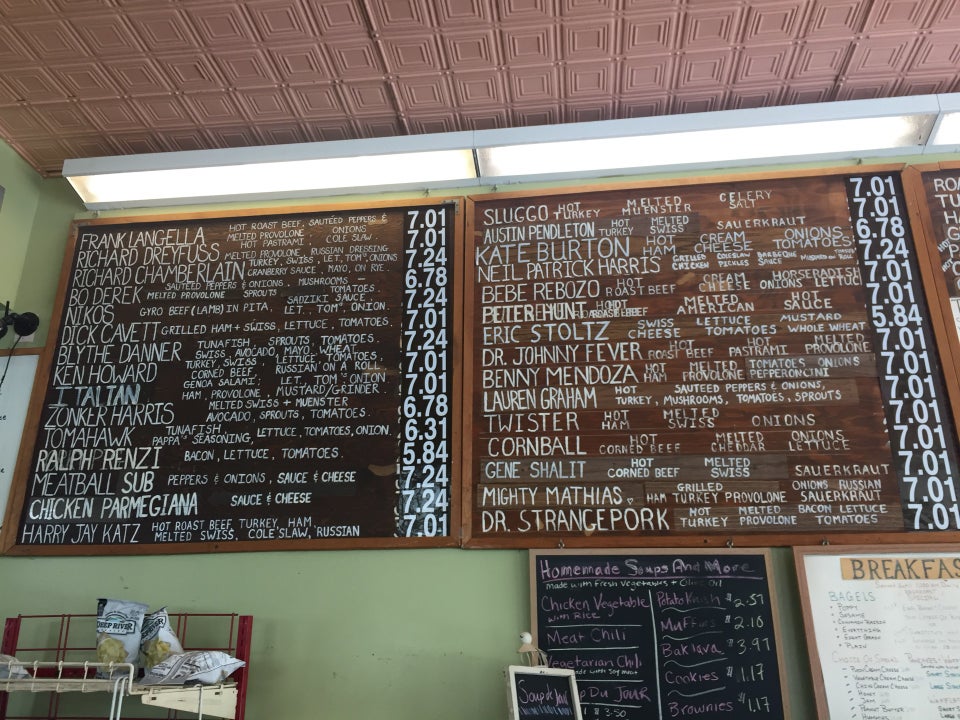 FRANK LANGELLA HOT ROAST BEEF, SAUTÉED PEPPERS & MELTED PROVOLONE ONIONS 7.01
RICHARD DREYFUSS HOT PASTRAMI, COLE SLAW, MELTED PROVOLONE, RUSSIAN DRESSING 7.01
RICHARD CHAMBERLAIN TURKEY, SWISS, LET, TOM, ONIONS CRANBERRY SAUCE, MAYO, ON RYE. 7.24
BO DEREK SAUTÉED PEPPERS & ONIONS, MUSHROOMS MELTED PROVOLONE SPROUTS, TOMATOES. 6.78
NIKOS GYRO BEEF (LAMB) IN PITA, SADZIKI SAUCE LET., TOM., ONION. 7.24
DICK CAVETT GRILLED HAM + SWISS, LETTUCE, TOMATOES. 7.01
BLYTHE DANNER TUNAFISH, SPROUTS, TOMATOES. SWISS, AVOCADO, MAYO, WHEAT 7.24
KEN HOWARD TURKEY, SWISS, LETTUCE, TOMATOES, CORNED BEEF, RUSSIAN ON A ROLL 7.01
ITALIAN GENOA SALAMI, LET, TOM, ONION HAM, PROVOLONE, MUSTARD/GRINDER. 7.01
ZONKER HARRIS MELTED SWISS + MUENSTER AVOCADO, SPROUTS, TOMATOES. 6.78
TOMAHAWK TUNAFISH, PAPPA'S SEASONING, LETTUCE, TOMATOES, ONION 6.31
RALPH PRENZI BACON, LETTUCE, TOMATOES. 5.84
MEATBALL SUB PEPPERS & ONIONS, SAUCE & CHEESE 7.24
CHICKEN PARMEGIANA SAUCE & CHEESE 7.24
HARRY JAY KATZ HOT ROAST BEEF, TURKEY, HAM, MELTED SWISS, COLE SLAW, RUSSIAN 7.01
SLUGGO HOT TURKEY MELTED MUENSTER CELERY SALT 7.01
AUSTIN PENDLETON HOT TURKEY MELTED SWISS SAUERKRAUT 6.78
KATE BURTON HOT HAM CREAM CHEESE ONIONS TOMATOES 7.24
NEIL PATRICK HARRIS GRILLED CHICKEN COLESLAW PICKLES BARBEQUE SAUCE 7.01
BEBE REBOZO HOT ROAST BEEF CREAM CHEESE HORSERADISH ONIONS LETTUCE 7.01
PETER HUNT AMERICAN CHEESE HOT SAUCE 5.84
ERIC STOLTZ SWISS CHEESE LETTUCE TOMATOES MUSTARD WHOLE WHEAT 7.01
DR. JOHNNY FEVER HOT ROAST BEEF HOT PASTRAMI MELTED PROVOLONE 7.01
BENNY MENDOZA HOT HAM MELTED PROVOLONE TOMATOES ONIONS PEPPERONCINI 7.01
LAUREN GRAHAM HOT SAUTÉED PEPPERS & ONIONS, TURKEY, MUSHROOMS, TOMATOES, SPROUTS 7.01
TWISTER HOT HAM MELTED SWISS ONIONS 7.01
CORNBALL HOT CORNED BEEF MELTED CHEDDAR ONIONS LETTUCE 7.01
GENE SHALIT HOT CORNED BEEF MELTED SWISS SAUERKRAUT 7.01
MIGHTY MATHIAS GRILLED HAM TURKEY PROVOLONE ONIONS RUSSIAN SAUERKRAUT 7.01
DR. STRANGEPORK HOT TURKEY MELTED PROVOLONE BACON LETTUCE TOMATOES 7.01
Homemade Soups And More
made with Fresh Vegetables + Olive Oil
Chicken Vegetable with Rice
Meat Chili
Vegetarian Chili made with Soy meat
Soup Du Jour
$3.50
Potato Knish $2.57
Muffins $2.10
Baklava $3.97
Cookies $1.17
Brownies $1.17
DEEP RIVER
BREAKFAS
BAGELS
POPPY
SESAME
CINNAMON RAISIN
EVERYTHING
PLAIN